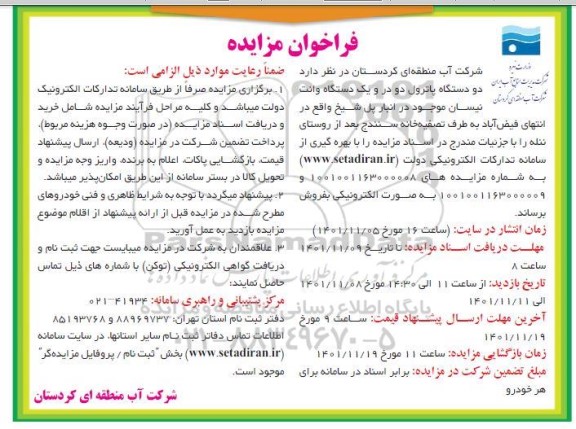 فراخوان مزایده
وزارت نیرو
شرکت مدیریت منابع آب ایران
شرکت آب منطقه‌ای کردستان
شرکت آب منطقه‌ای کردستان در نظر دارد
دو دستگاه پاترول دو در و یک دستگاه وانت
نیسان موجود در انبار پل شیخ واقع در
انتهای فیض‌آباد به طرف تصفیه‌خانه سنندج بعد از روستای
ننله را با جزئیات مندرج در اسناد مزایده را با بهره گیری از
سامانه تدارکات الکترونیکی دولت (www.setadiran.ir)
به شماره مزایده های ۱۰۰۱۰۰۱۱۶۳۰۰۰۰۰۸ و
۱۰۰۱۰۰۱۱۶۳۰۰۰۰۰۹ به صورت الکترونیکی بفروش
برساند.
زمان انتشار در سایت: (ساعت ۱۶ مورخ ۱۴۰۱/۱۱/۰۵)
مهلت دریافت اسناد مزایده: تا تاریخ ۱۴۰۱/۱۱/۰۹
ساعت ۸
تاریخ بازدید: از ساعت ۱۱ الی ۱۴:۳۰ مورخ ۱۴۰۱/۱۱/۰۸
الی ۱۴۰۱/۱۱/۱۱
آخرین مهلت ارسال پیشنهاد قیمت: ساعت ۹ مورخ
۱۴۰۱/۱۱/۱۹
زمان بازگشایی مزایده: ساعت ۱۱ مورخ ۱۴۰۱/۱۱/۱۹
مبلغ تضمین شرکت در مزایده: برابر اسناد در سامانه برای
هر خودرو
ضمناً رعایت موارد ذیل الزامی است:
۱. برگزاری مزایده صرفاً از طریق سامانه تدارکات الکترونیک
دولت میباشد و کلیه مراحل فرآیند مزایده شامل خرید
و دریافت اسناد مزایده (در صورت وجوه هزینه مربوط).
پرداخت تضمین شرکت در مزایده (ودیعه)، ارسال پیشنهاد
قیمت، بازگشایی پاکات، اعلام به برنده، واریز وجه مزایده و
تحویل کالا در بستر سامانه از این طریق امکان‌پذیر میباشد.
۲. پیشنهاد میگردد با توجه به شرایط ظاهری و فنی خودروهای
مطرح شده در مزایده قبل از ارائه پیشنهاد از اقلام موضوع
مزایده بازدید به عمل آورید.
۳. علاقمندان به شرکت در مزایده میبایست جهت ثبت نام و
دریافت گواهی الکترونیکی (توکن) با شماره های ذیل تماس
حاصل نمایند:
مرکز پشتیبانی و راهبری سامانه: ۴۱۹۳۴-۰۲۱
دفتر ثبت نام استان تهران: ۸۸۹۶۹۷۳۷ و ۸۵۱۹۳۷۶۸
اطلاعات تماس دفاتر ثبت نام سایر استانها، در سایت سامانه
(www.setadiran.ir) بخش "ثبت نام / پروفایل مزایده‌گر"
موجود است.
شرکت آب منطقه ای کردستان